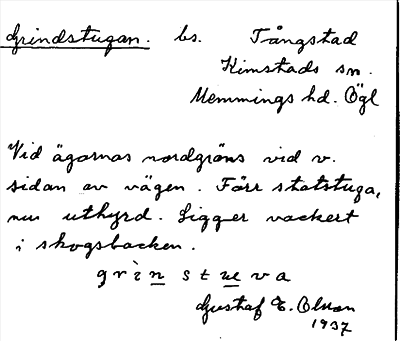 Grindstugan. bs. Tångstad
Kimstads sn.
Memmings hd. Ögl
Vid ägornas nordgräns vid v.
sidan av vägen. Förr statstuga,
nu uthyrd. Ligger vackert
i skogsbacken.
g r ì n s t u e v a
Gustaf E. Olsson
1937